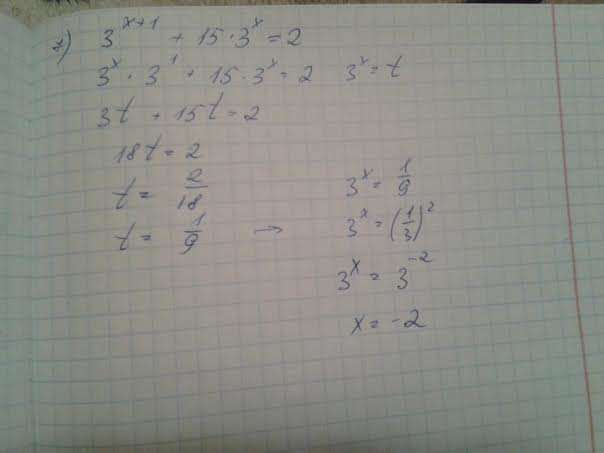 7) 3^{x+1} + 15 · 3^x = 2
3^x · 3^1 + 15 · 3^x = 2 3^x = t
3t + 15t = 2
18t = 2
t = 2/18
t = 1/9 → 3^x = 1/9
3^x = (1/3)^2
3^x = 3^{-2}
x = -2